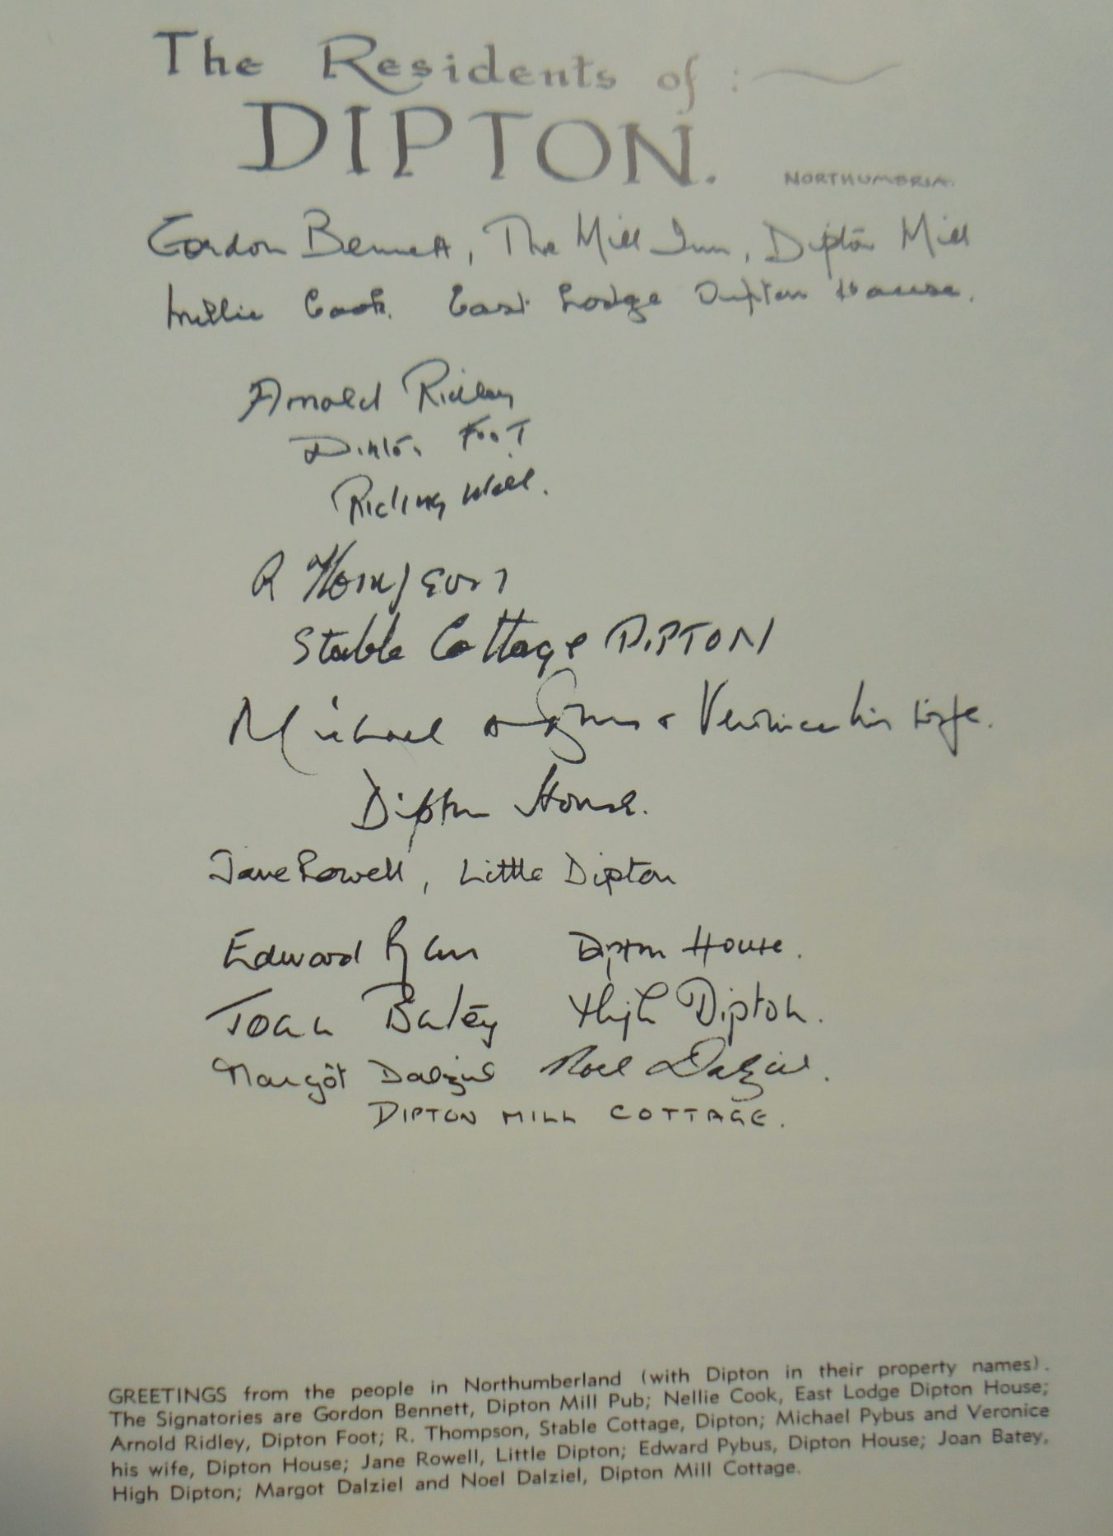 The Residents of :
DIPTON.
NORTHUMBRIA.
Gordon Bennett, The Mill Inn, Dipton Mill
Nellie Cook. East Lodge Dipton House.
Arnold Ridley
Dipton Foot
Riding Mill.
R Thompson
Stable Cottage DIPTON
Michael Pybus + Veronica his wife.
Dipton House.
Jane Rowell, Little Dipton
Edward Dipton House.
Joan Batey High Dipton.
Margot Dalziel Noel Dalziel.
DIPTON MILL COTTAGE.
GREETINGS from the people in Northumberland (with Dipton in their property names).
The Signatories are Gordon Bennett, Dipton Mill Pub; Nellie Cook, East Lodge Dipton House;
Arnold Ridley, Dipton Foot; R. Thompson, Stable Cottage, Dipton; Michael Pybus and Veronice
his wife, Dipton House; Jane Rowell, Little Dipton; Edward Pybus, Dipton House; Joan Batey,
High Dipton; Margot Dalziel and Noel Dalziel, Dipton Mill Cottage.